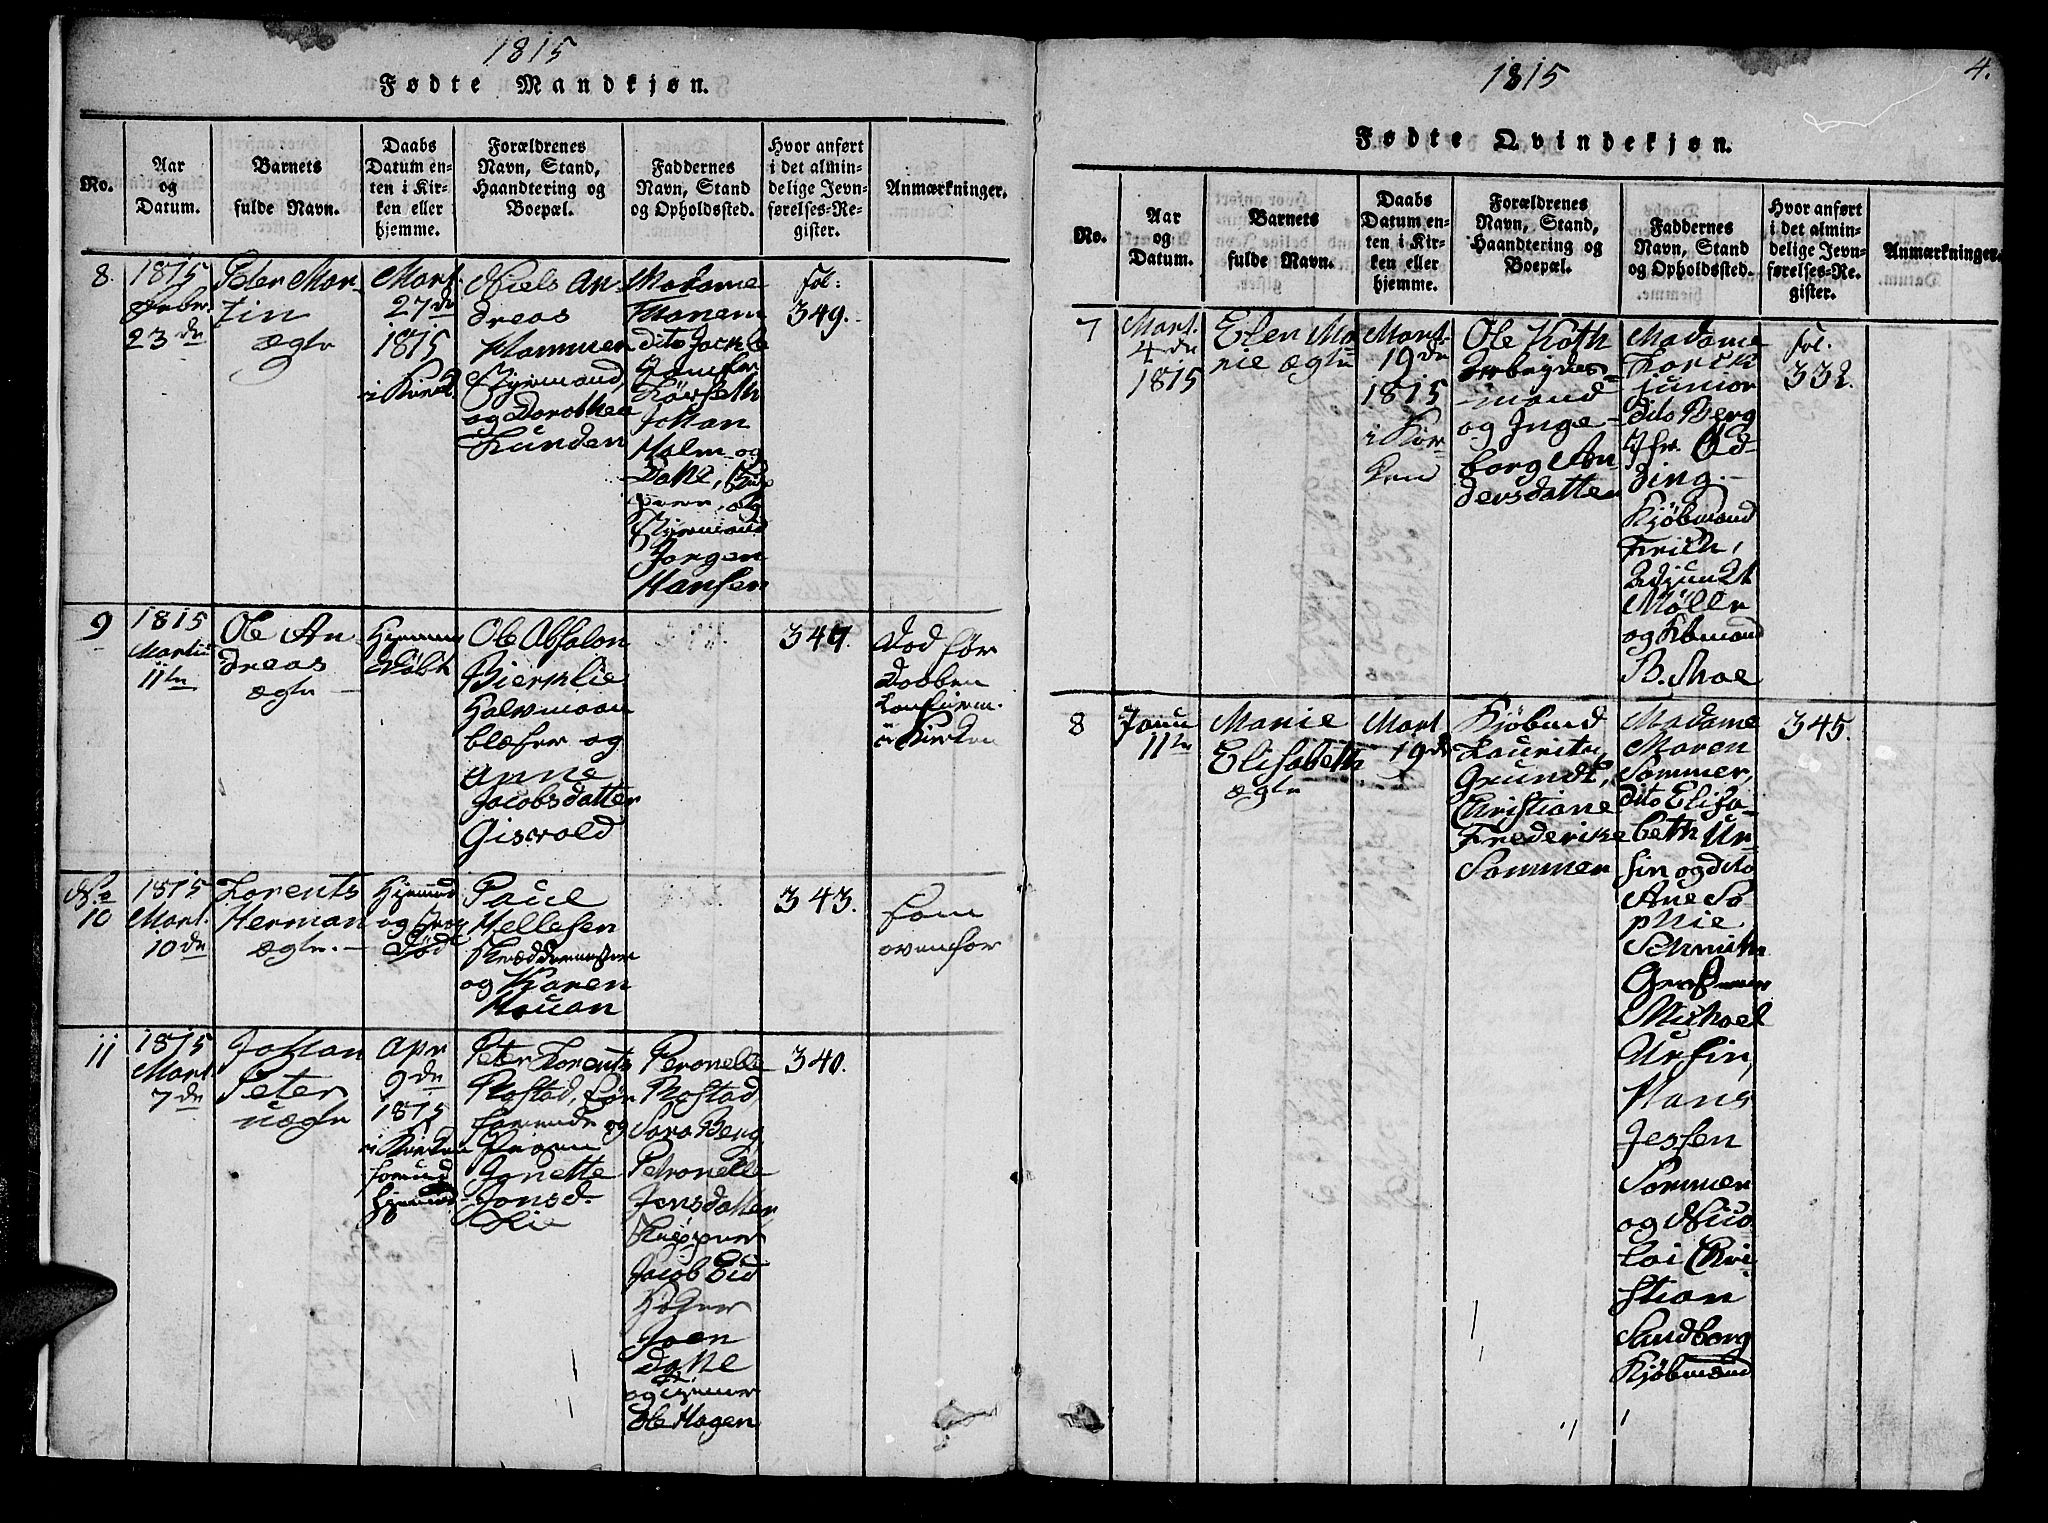 1815
Fødte Mandkjøn.
No.
Aar
og
Datum.
Barnets
fulde Navn.
Daabs
Datum en-
ten i Kir-
ken eller
hjemme.
Forældrenes
Navn, Stand,
Haandtering og
Boepæl.
Faddernes
Navn, Stand
og Opholdssted.
Hvor anført
i det almin-
delige Jevn-
førelses-Re-
gister.
Anmærkninger.
8.
1815
Febr.
23de
Peter Mar-
tin
ægte
Mart.
27de
1815
i Kirck.
Niels An-
dreas
Hammer
Styrmand
og Dorothea
Lunden
Madame
Thanem
dito Jackle
Jomfer
Johan
Holm og
Styrmand
Jørgen
Hansen
Fol:
349.
9
1815
Martii
11te
Ole An
dreas
ægte
Hjemme
døbt
Ole Absalon
Bierklie
Halvmaan
blæser og
Anne
Jacobsdatter
Giswold
347.
Død før
Daaben
i Kirken
No
10
1815
Mart.
10de
Lorents
Herman
ægte.
Hjemme
og
Død
Paul
Hellesen
Skræddermester
og Karen
343.
som
ovenfor
11
1815
Mart.
7de
Johan
Peter
uægte
Apr
9de
1815
i Kirken
Peter Lorents
Rostad, før
farende og
Pigen
Jonsd.
Lie
Peronelle
Rostad,
Sara Berg,
Petronelle
Jonsdatter,
Skipper
Jacob Eid
Joen
Dahl
og
Ole Hagen
340.
1815
4.
Fødte Qvindekjøn.
No.
Aar
og
Datum.
Barnets
fulde Navn.
Daabs
Datum en-
ten i Kir-
ken eller
hjemme.
Forældrenes
Navn, Stand,
Haandtering og
Boepæl.
Faddernes
Navn, Stand
og Opholdssted.
Hvor anført
i det almin-
delige Jevn-
førelses-Re-
gister.
Anmærkninger.
7
Mart.
4de
1815
Elen Ma
rie ægte
Mart.
19de
1815
i Kir-
ken
Ole Koth
Arbeydes-
mand
og Inge-
borg An
dersdatter
Madame
junior
dito Berg
Jfr. Ød-
ding
Kjöbmand
Frich,
Adjunct
Mølle
og Kbmand
B. Moe
Fol.
332.
8
Janu
11te
Marie
Elisabeth
ægte
Mart
19de
Kjøbmd
Lauritz
Grundt,
Christiane
Frederike
Sommer
Madame
Maren
Sommer,
dito Elisa-
beth Ur-
sin og dito
Ane So
phie
Schmith
Michael
Ursin,
Hans
Jessen
Sommer
og Nico-
lai Chri-
stian
Sandborg
Kjöbmænd
345.